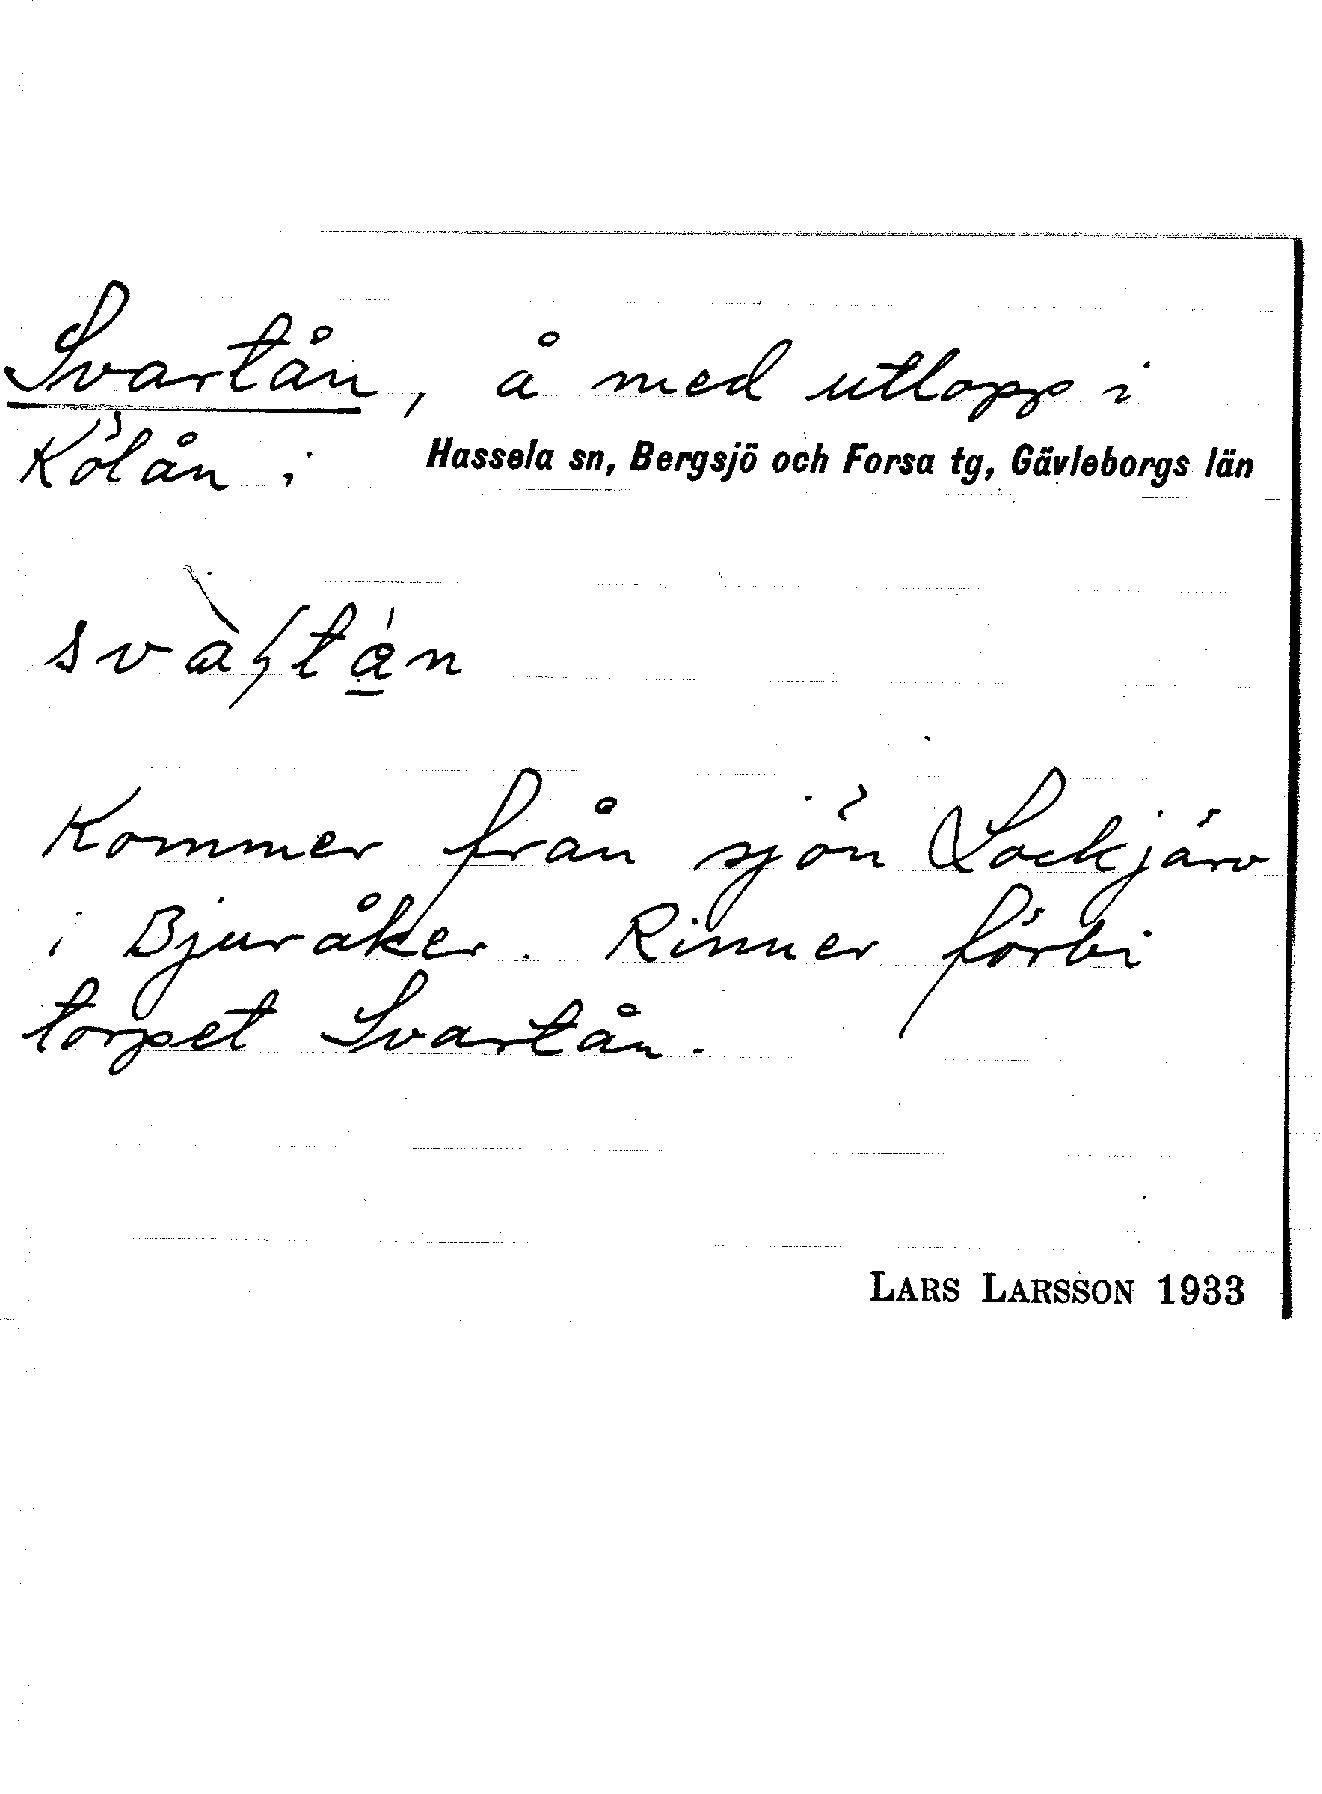 Svartån, å med utlopp i
Kölån i Hassela sn, Bergsjö och Forsa tg, Gävleborgs län
Kommer från sjön Lockjärv
i Bjuråker. Rinner förbi
torpet Svartån.
LARS LARSSON 1933